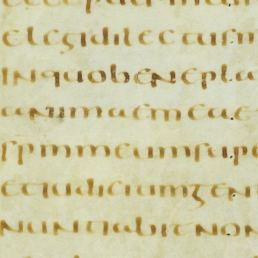 elegidilectusm
inquobenepla
animaemeae
spmmeumsupe
etiudiciumgen
nuntiabitnon